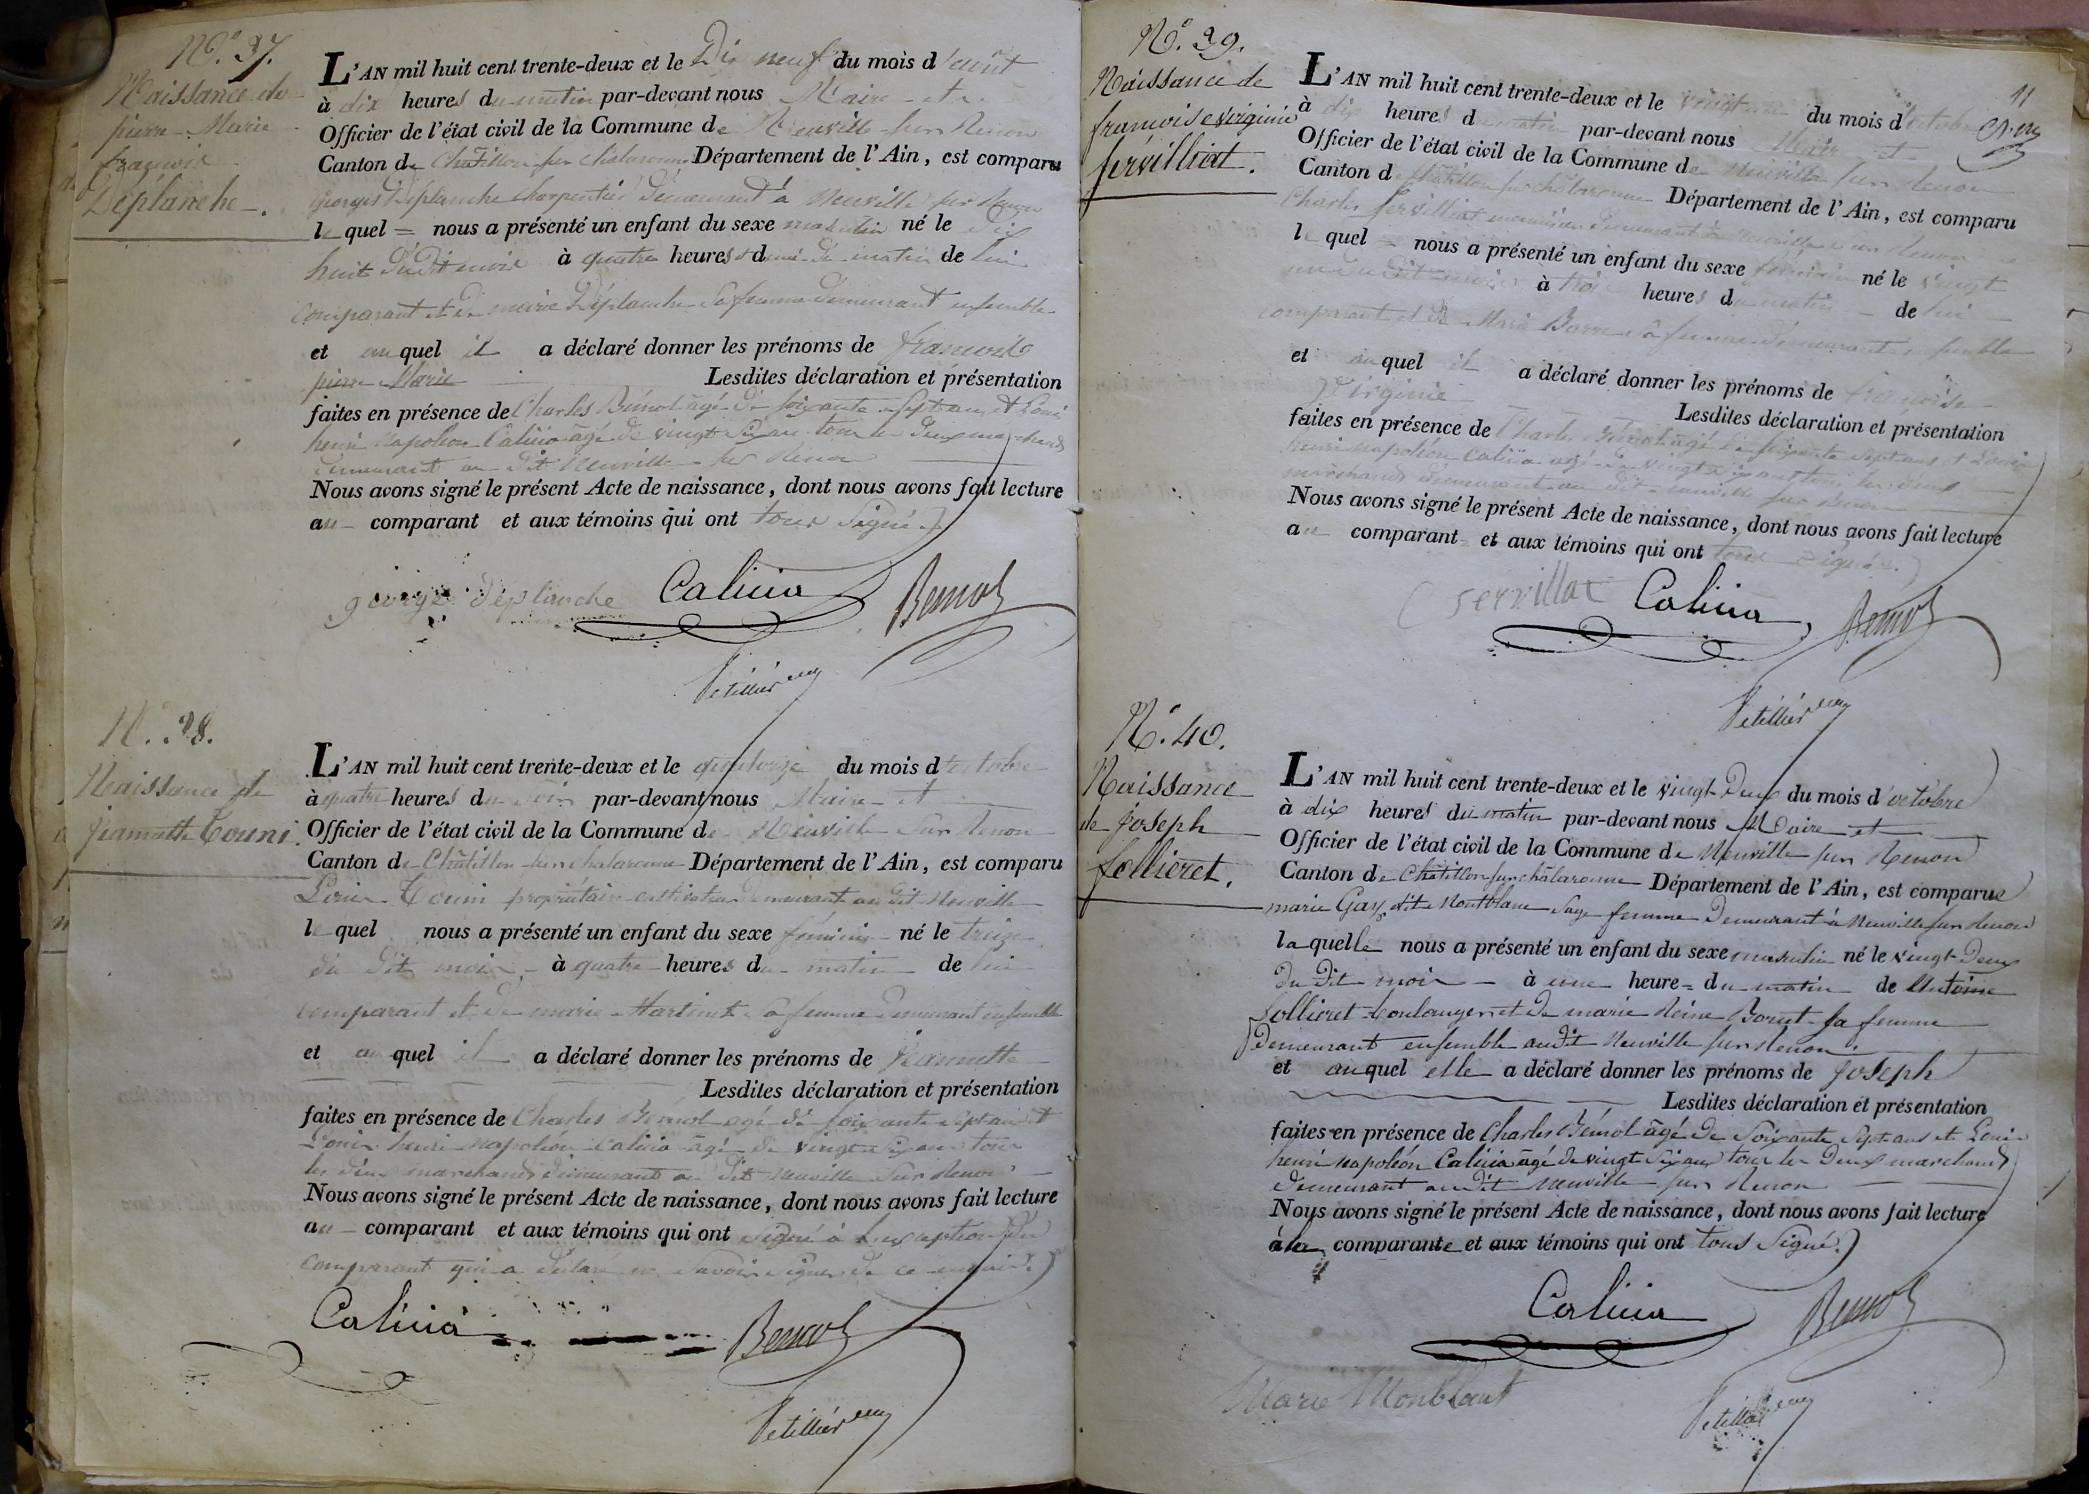 N.° 37.
Naissance de
pierre Marie
françois
Déplanche.
L'AN mil huit cent trente-deux et le Dix neuf du mois d'août
à dix heures du matin par-devant nous Maire et
Officier de l'état civil de la Commune de Neuville sur Renon
Canton de Châtillon sur chalaronne Département de l'Ain, est comparu
georges Déplanche charpentier Demeurant à Neuville sur Renon
lequel = nous a présenté un enfant du sexe masculin né le Dix
huit Du Dit mois à quatre heures et demi du matin de lui
comparant et De marie Déplanche Sa femme demeurant ensemble
et auquel il a déclaré donner les prénoms de françois
pierre Marie Lesdites déclaration et présentation
faites en présence de Charles Bémol âgé De soixante Sept ans et Louis
henri napoléon Calicia âgé De vingt Six ans tous les Deux marchands
Demeurant au Dit Neuville sur Renon
Nous avons signé le présent Acte de naissance, dont nous avons fait lecture
au comparant et aux témoins qui ont tous Signé.
george déplanche Calicia Bemol
Petillier
N.° 38.
Naissance de
jeannette Touni.
L'AN mil huit cent trente-deux et le quatorze du mois d'octobre
à quatre heures du soir par-devant nous Maire et
Officier de l'état civil de la Commune de Neuville Sur Renon
Canton de Châtillon sur chalaronne Département de l'Ain, est comparu
Louis Touni propriétaire cultivateur Demeurant au Dit Neuville
lequel nous a présenté un enfant du sexe féminin né le treize
du Dit mois à quatre heures du matin de lui
comparant et De marie Sa femme Demeurant ensemble
et auquel il a déclaré donner les prénoms de jeannette
Lesdites déclaration et présentation
faites en présence de Charles Bémol agé dé soixante sept ans et
Louis henri napoléon Calicia âgé De vingt Six ans tous
les deux marchands demeurant au Dit Neuville Sur Renon
Nous avons signé le présent Acte de naissance, dont nous avons fait lecture
au comparant et aux témoins qui ont signé à l'exception du
comparant qui a déclaré ne Savoir signer de ce enquis.
Calicia Bemol
Petillier
N.° 39.
Naissance de
francoise virginie
servilliat.
11
L'AN mil huit cent trente-deux et le vingt un du mois d'octobre
à dix heures du matin par-devant nous Maire et
Officier de l'état civil de la Commune de Neuville sur Renon
Canton de Châtillon sur chalaronne Département de l'Ain, est comparu
Charles servilliat menuisier Demeurant à Neuville sur Renon
lequel = nous a présenté un enfant du sexe féminin né le vingt
un du Dit mois à trois heures du matin de lui
comparant et De Marie Sa femme Demeurant ensemble
et auquel il a déclaré donner les prénoms de françoise
Virginie Lesdites déclaration et présentation
faites en présence de Charles Bémol âgé De soixante Sept ans et Louis
henri napoléon Calicia agé De vingt Six ans tous les deux
marchands Demeurant au dit neuville sur Renon
Nous avons signé le présent Acte de naissance, dont nous avons fait lecture
au comparant et aux témoins qui ont tous Signé.
C servillat Calicia Bemol
Petillier
N.° 40.
Naissance
de joseph
follieret.
L'AN mil huit cent trente-deux et le vingt-Deux du mois d'octobre
à dix heures du matin par-devant nous Maire et
Officier de l'état civil de la Commune de Neuville sur Renon
Canton de Châtillon sur châlaronne Département de l'Ain, est comparue
marie Gay dite Montblanc Sage femme Demeurant à Neuville sur Renon
laquelle nous a présenté un enfant du sexe masculin né le vingt-Deux
Du Dit mois à une heure = du matin de Antoine
follieret boulanger et De marie Reine Sa femme
Demeurant ensemble audit Neuville sur Renon
et auquel elle a déclaré donner les prénoms de joseph
Lesdites déclaration et présentation
faites en présence de Charles Bémol âgé De Soixante Sept ans et Louis
henri napoléon Calicia âgé De vingt Six ans tous les Deux marchands
demeurant audit Neuville sur Renon
Nous avons signé le présent Acte de naissance, dont nous avons fait lecture
à la comparante et aux témoins qui ont tous Signé.
Calicia Bemol
Marie Monblant Petillier